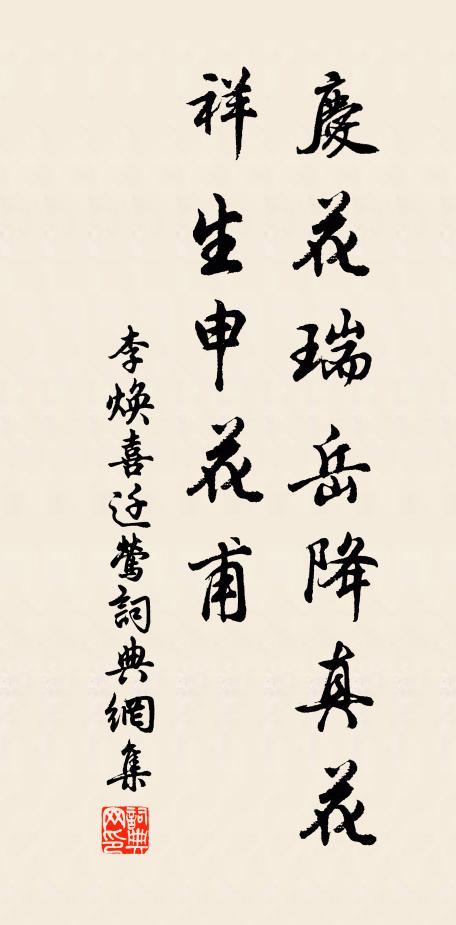 慶花瑞岳降真花
祥生申花甫
李焕喜迁鶯詞典網集
詞典
网印